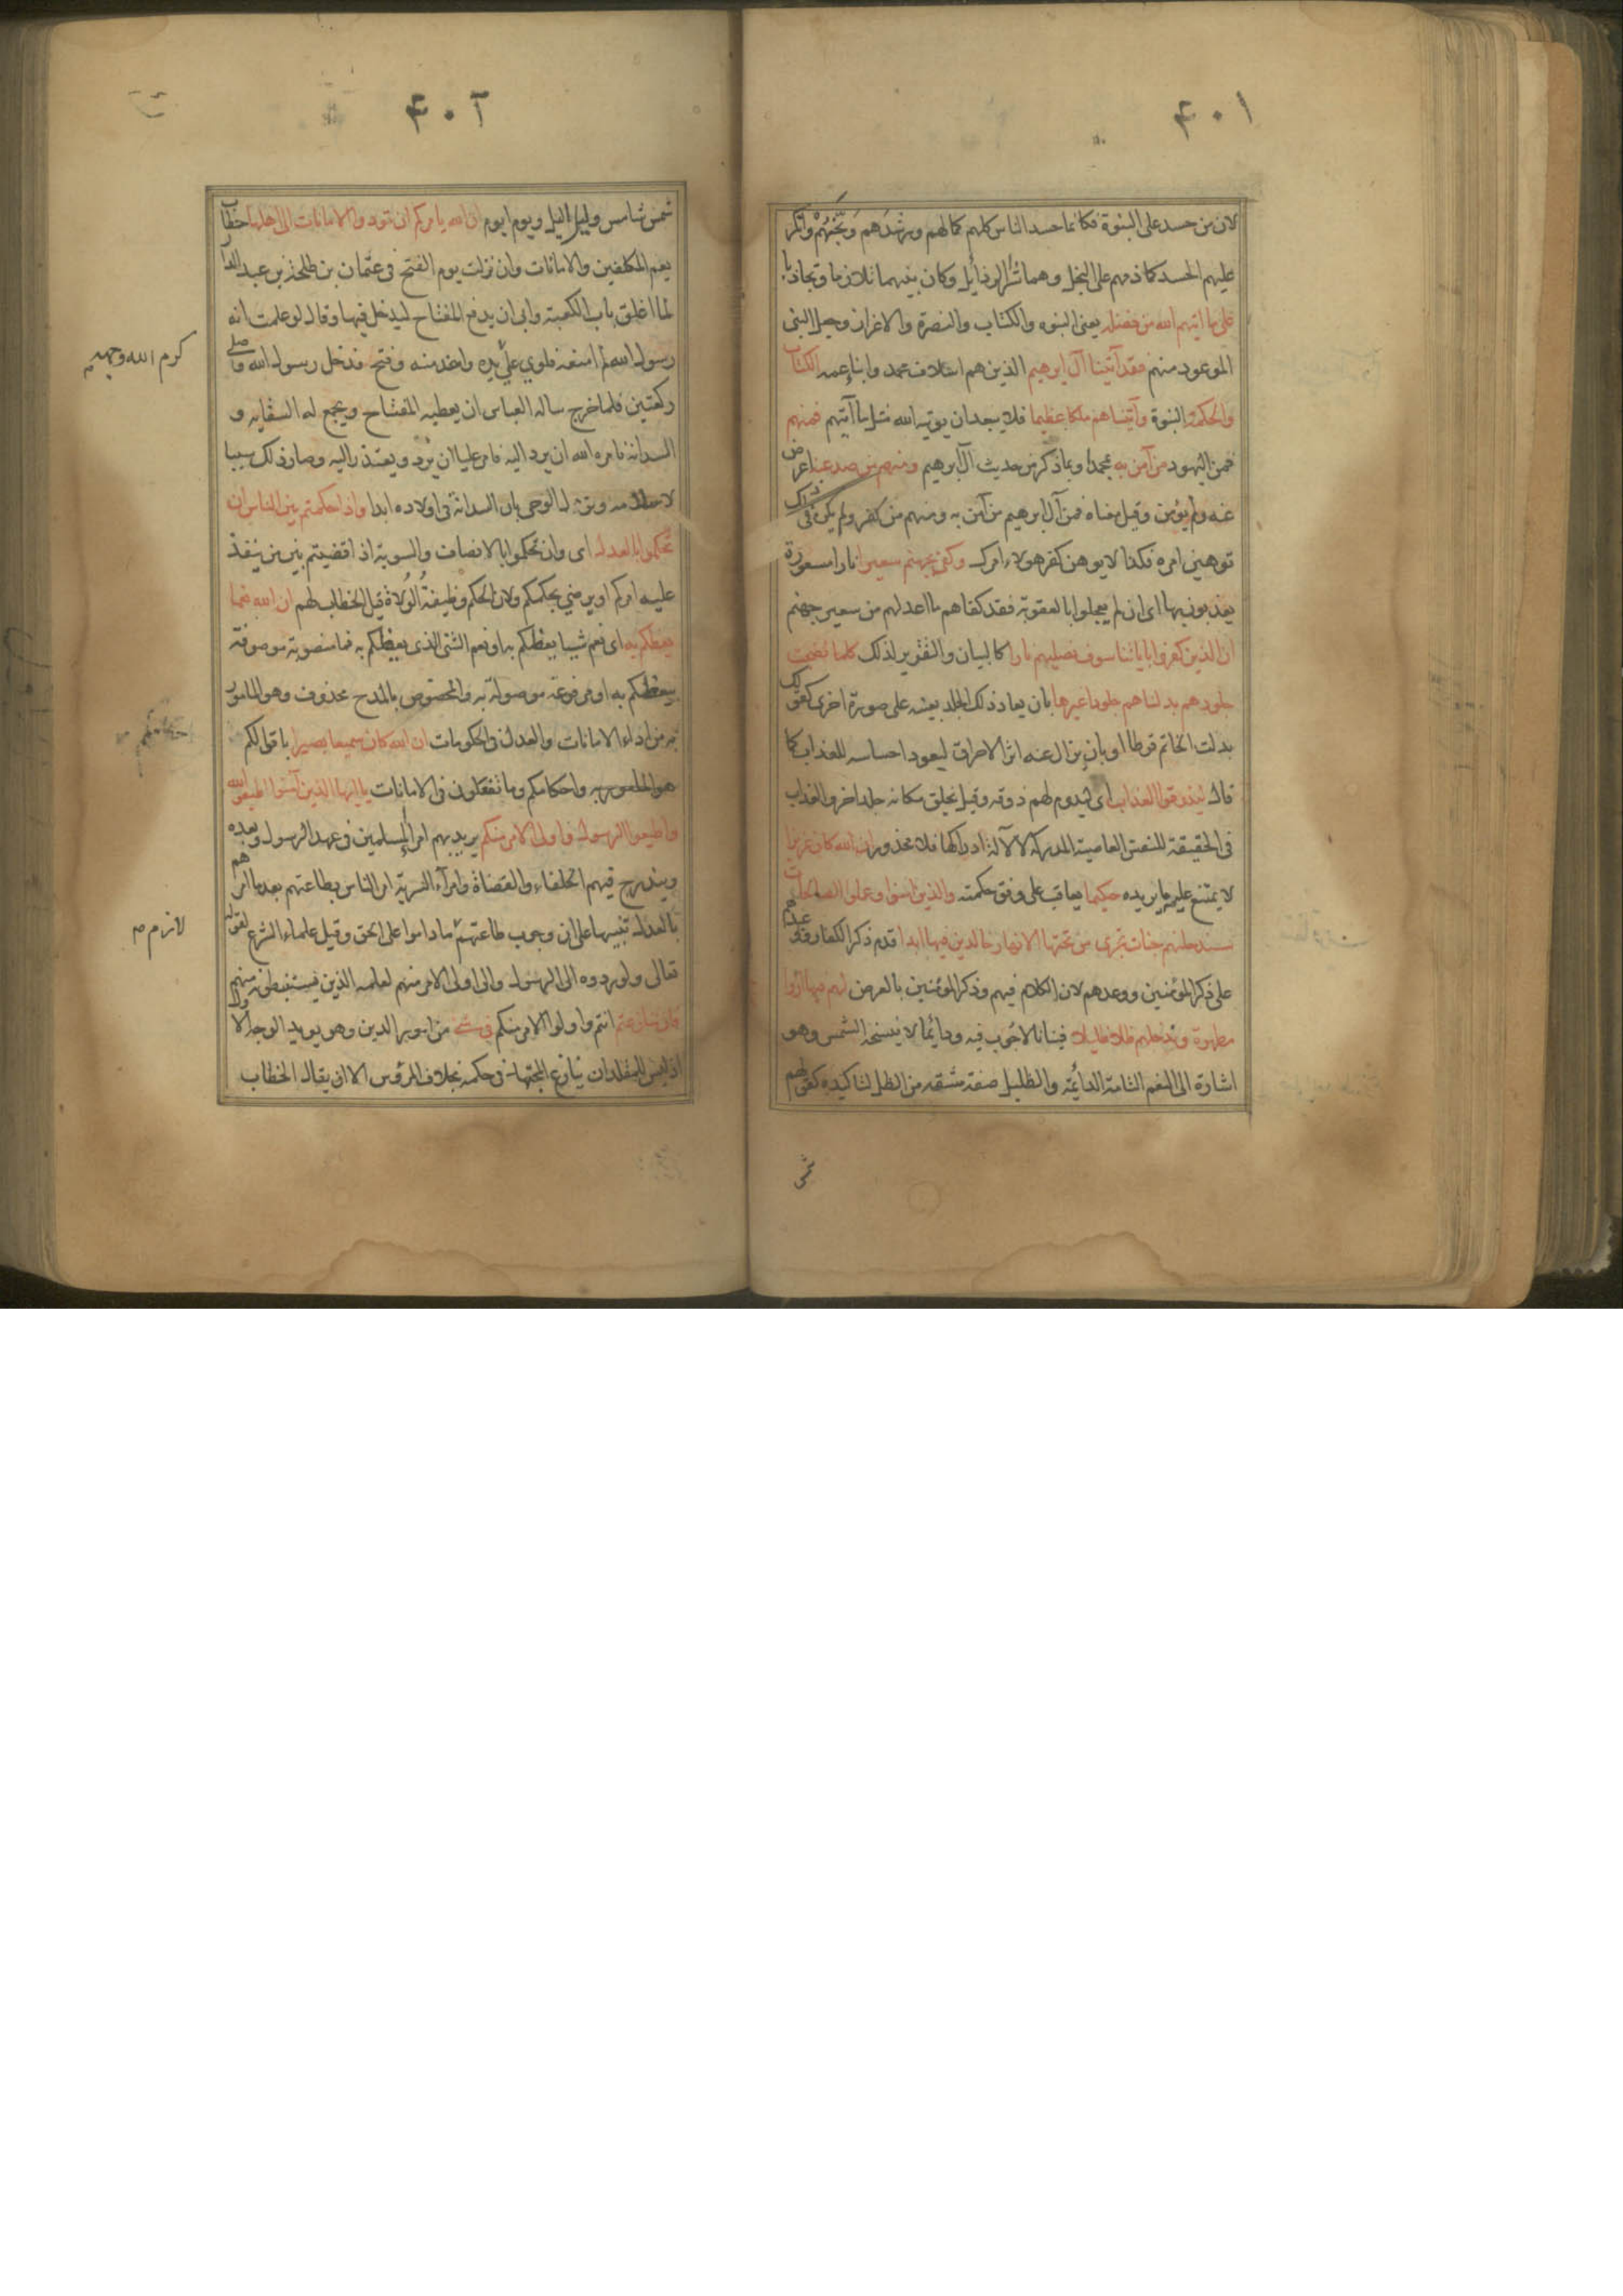 ۴۰۱
لان من حسد على النبوة فكانما حسد الناس كلهم كمالهم ورشدهم وبخهم وانكر
عليهم الحسد كما ذمهم على البخل وهما شر الرذايل وكان بينهما تلازما وتجاذبا
على ما اتيهم الله من فضله يعنى النبوه والكتاب والنصرة والاعزاز وجعل النبى
الموعود منهم فقد آتينا آل ابرهيم الذين هم اسلاف محمد وابناء عمه الكتاب
والحكمة والنبوة وآتيناهم ملكا عظيما فلا يبعد ان يوتيه الله مثل ما آتيهم فمنهم
فمن اليهود من آمن به بمحمد او بما ذكر من حديث آل ابرهيم ومنهم من صد عنه اعرض
عنه ولم يؤمن وقيل معناه فمن آل ابرهيم من آمن به ومنهم من كفر ولم يكن فى ذلك
توهين امره فكذا لا يوهن كفر هولاء امرك وكفى بجهنم سعيرا نارا مسعورة
يعذبون بها اى ان لم يعجلوا بالعقوبة فقد كفاهم ما اعد لهم من سعير جهنم
ان الذين كفروا باياتنا سوف نصليهم نارا كالبيان والتقرير لذلك كلما نضجت
جلودهم بدلناهم جلودا غيرها بان يعاد ذلك الجلد بعينه على صورة اخرى كقولك
بدلت الخاتم قرطا او بان يزال عنه اثر الاحراق ليعود احساسه للعذاب كما
قال ليذوقوا العذاب اى ليدوم لهم ذوقه وقيل يخلق مكانه جلد اخر والعذاب
فى الحقيقة للنفس العاصية المدركة لا لآلة ادراكها فلا محذور ان الله كان عزيزا
لا يمتنع عليه ما يريده حكيما يعاقب على وفق حكمته والذين امنوا وعملوا الصالحات
سندخلهم جنات تجرى من تحتها الانهار خالدين فيها ابدا قدم ذكر الكفار ووعيدهم
على ذكر المؤمنين ووعدهم لان الكلام فيهم وذكر المؤمنين بالعرض لهم فيها ازواج
مطهرة وندخلهم ظلا ظليلا فينانا لا جوب فيه ودائما لا ينسخه الشمس وهو
اشارة الى النعم التامة الدائمة والظليل صفة مشتقة من الظل لتاكيده كقولهم
شمس
۴۰۲
شمس شامس وليل اليل ويوم ايوم ان الله يامركم ان تودوا الامانات الى اهلها خطاب
يعم المكلفين والامانات وان نزلت يوم الفتح فى عثمان بن طلحة بن عبد الدار
لما اغلق باب الكعبة وابى ان يدفع المفتاح ليدخل فيها وقال لو علمت انه
رسول الله لم امنعه فلوى على يده واخذ منه وفتح فدخل رسول الله وصلى
كرم الله وجهه
ركعتين فلما خرج ساله العباس ان يعطيه المفتاح ويجمع له السقايه و
السدانة فامره الله ان يرد اليه فامر عليا ان يرد ويعتذر اليه وصار ذلك سببا
لاسلامه ونزل الوحى بان السدانة فى اولاده ابدا واذا حكمتم بين الناس ان
تحكموا بالعدل اى وان تحكموا بالانصاف والسوية اذا قضيتم بين من ينفذ
عليه امركم او يرضى بحكمكم ولان الحكم وظيفة الولاة قيل الخطاب لهم ان الله نعما
يعظكم به اى نعم شيئا يعظكم به او نعم الشئ الذى يعظكم به فما منصوبة موصوفة
بيعظكم به او مرفوعة موصولة به والمخصوص بالمدح محذوف وهو المامور
به من اداء الامانات والعدل فى الحكومات ان الله كان سميعا بصيرا باقوالكم
هو المامور به واحكامكم وما تفعلون فى الامانات يا ايها الذين آمنوا اطيعوا الله
واطيعوا الرسول واولى الامر منكم يريد بهم امراء المسلمين فى عهد الرسول وبعده
ويندرج فيهم الخلفاء والقضاة وامرآء السرية امر الناس بطاعتهم بعد ما امرهم
بالعدل تنبيها على ان وجوب طاعتهم ما داموا على الحق وقيل علماء الشرع لقوله
لازم م
تعالى ولو ردوه الى الرسول والى اولى الامر منهم لعلمه الذين يستنبطونه منهم
فان تنازعتم انتم واولوا الامر منكم فى شئ من امور الدين وهو يويد الوجه الاول
اذ ليس للمقلد ان ينازع المجتهد فى حكمه بخلاف المرؤس الا ان يقال الخطاب